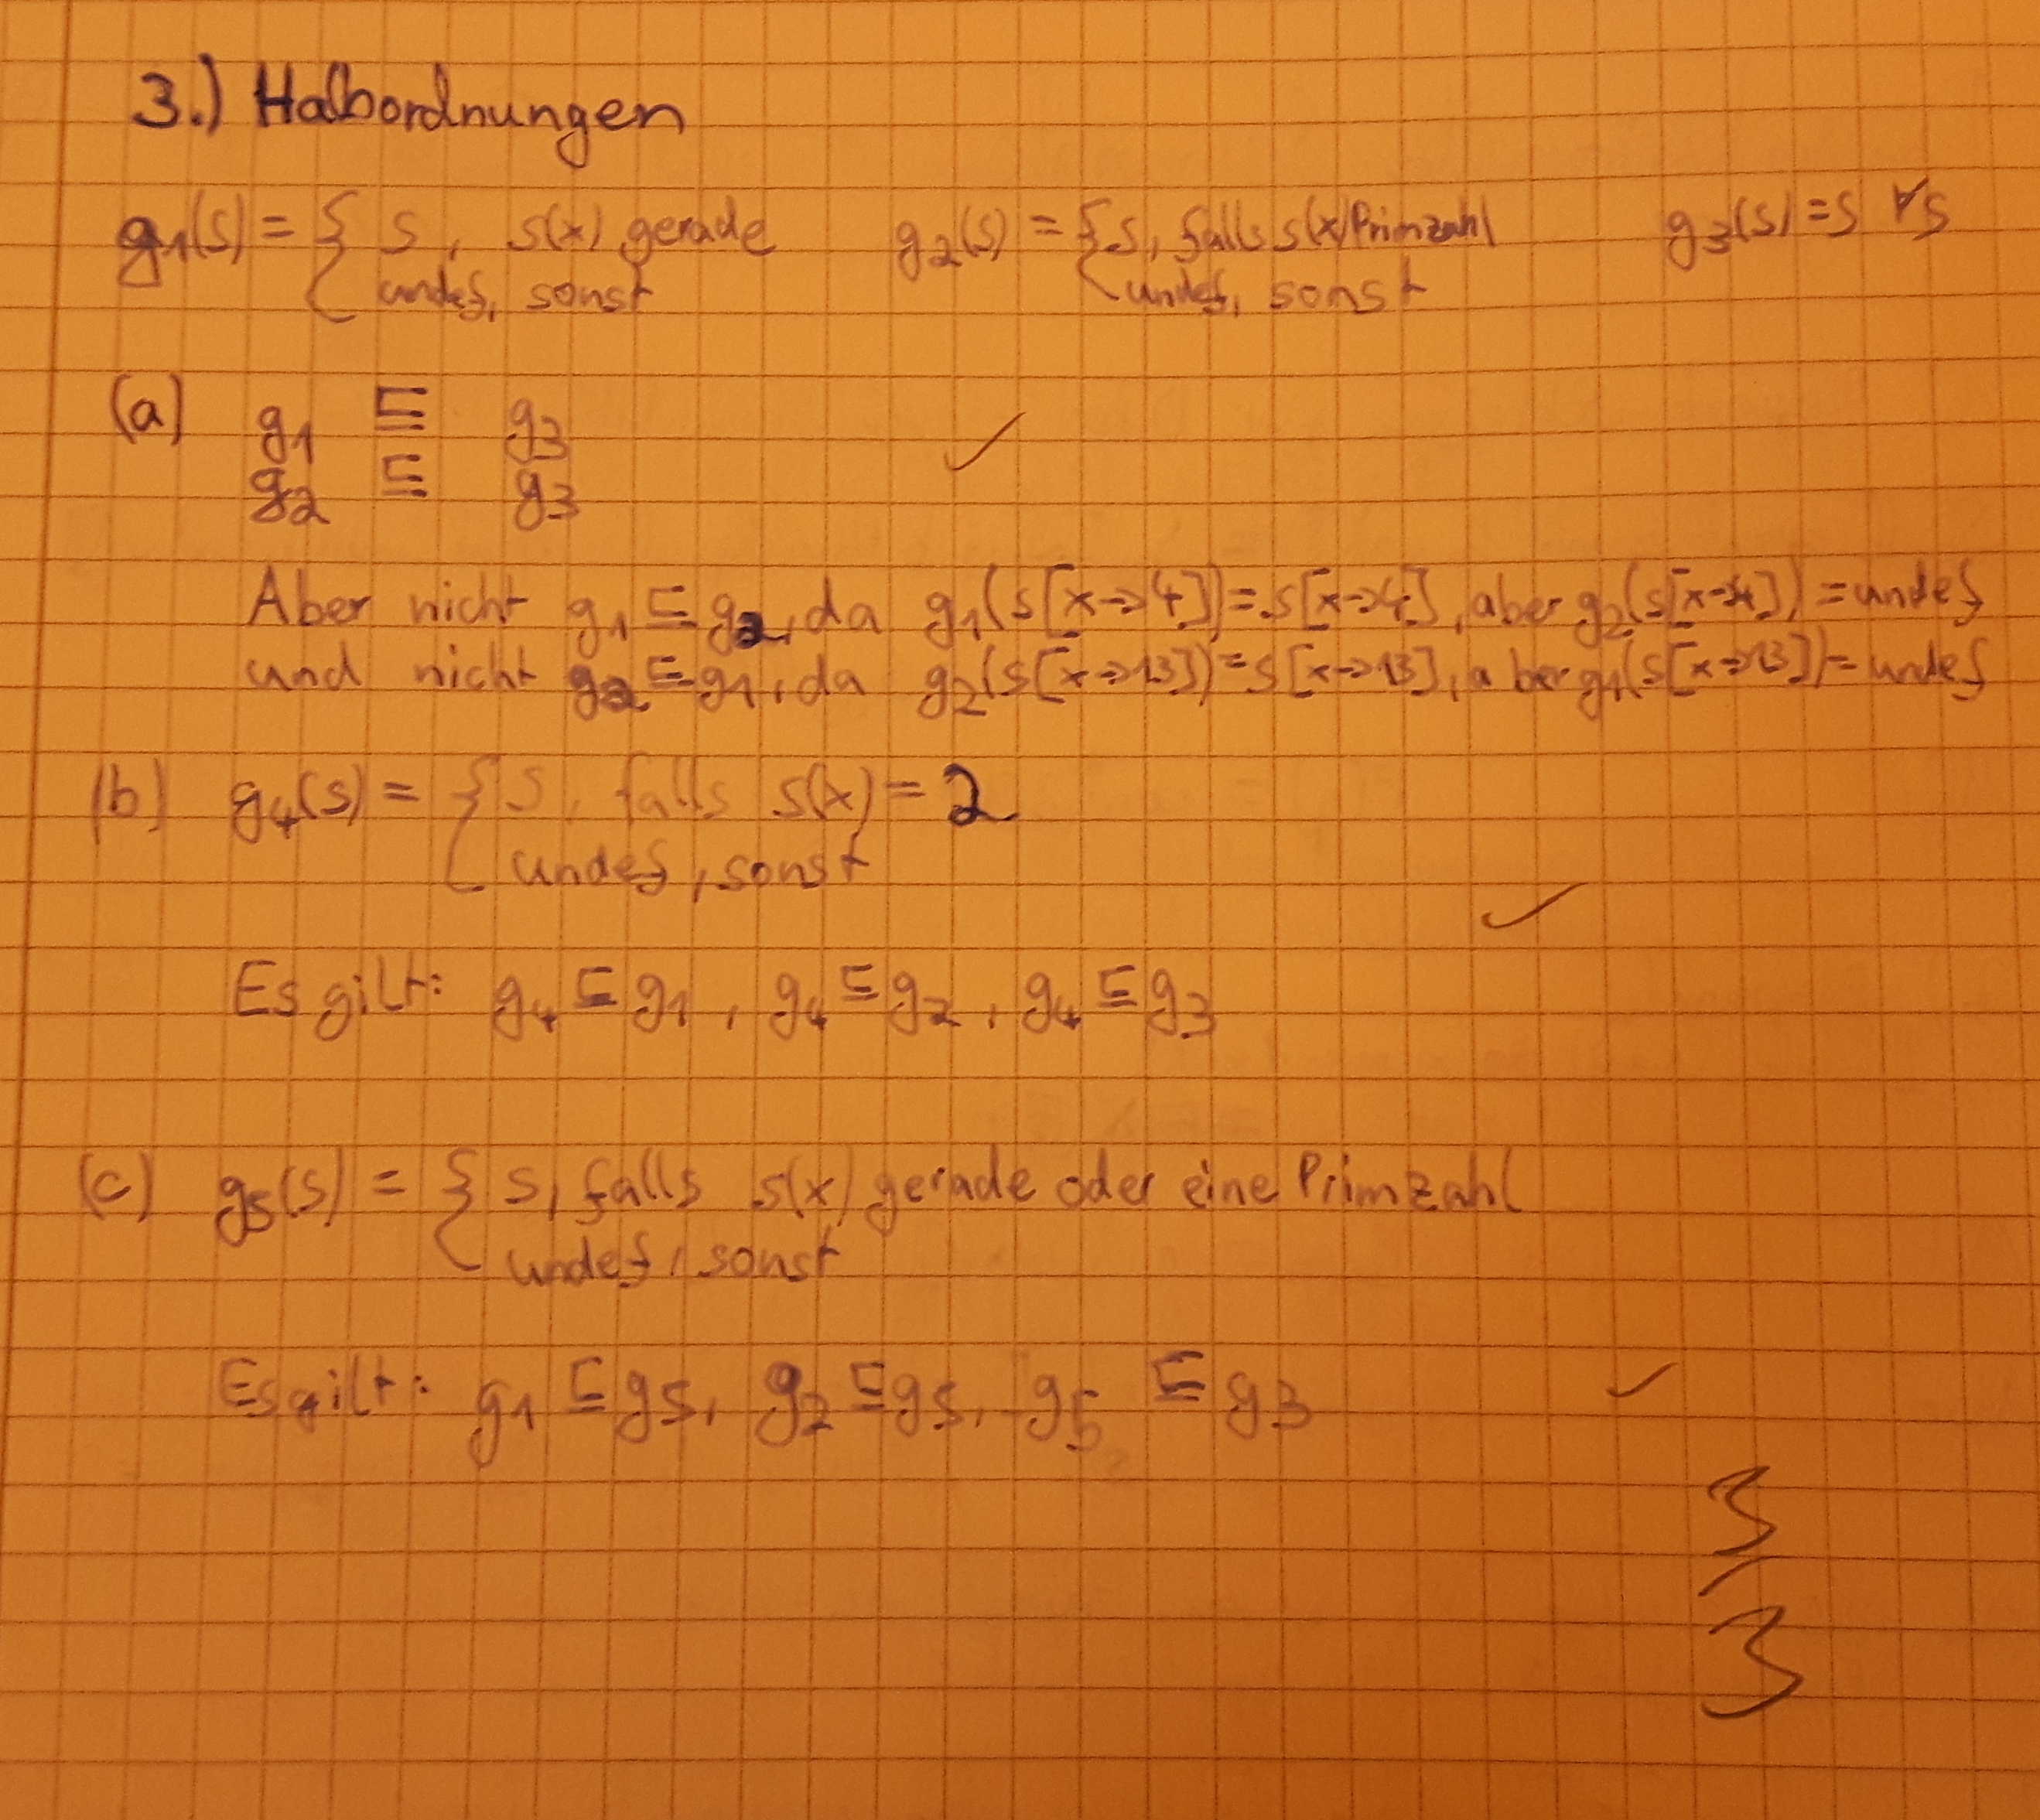 3.) Halbordnungen
g1(s) = { s, s(x) gerade
undef, sonst
g2(s) = { s, falls s(x) Primzahl
undef, sonst
g3(s) = s ∀s
(a) g1 ⊑ g3 ✓
g2 ⊑ g3
Aber nicht g1 ⊑ g2, da g1(s[x→4]) = s[x→4], aber g2(s[x→4]) = undef
und nicht g2 ⊑ g1, da g2(s[x→13]) = s[x→13], aber g1(s[x→13]) = undef
(b) g4(s) = { s, falls s(x) = 2
undef, sonst
✓
Es gilt: g4 ⊑ g1, g4 ⊑ g2, g4 ⊑ g3
(c) g5(s) = { s, falls s(x) gerade oder eine Primzahl
undef, sonst
Es gilt: g1 ⊑ g5, g2 ⊑ g5, g5 ⊑ g3 ✓
3
/
3